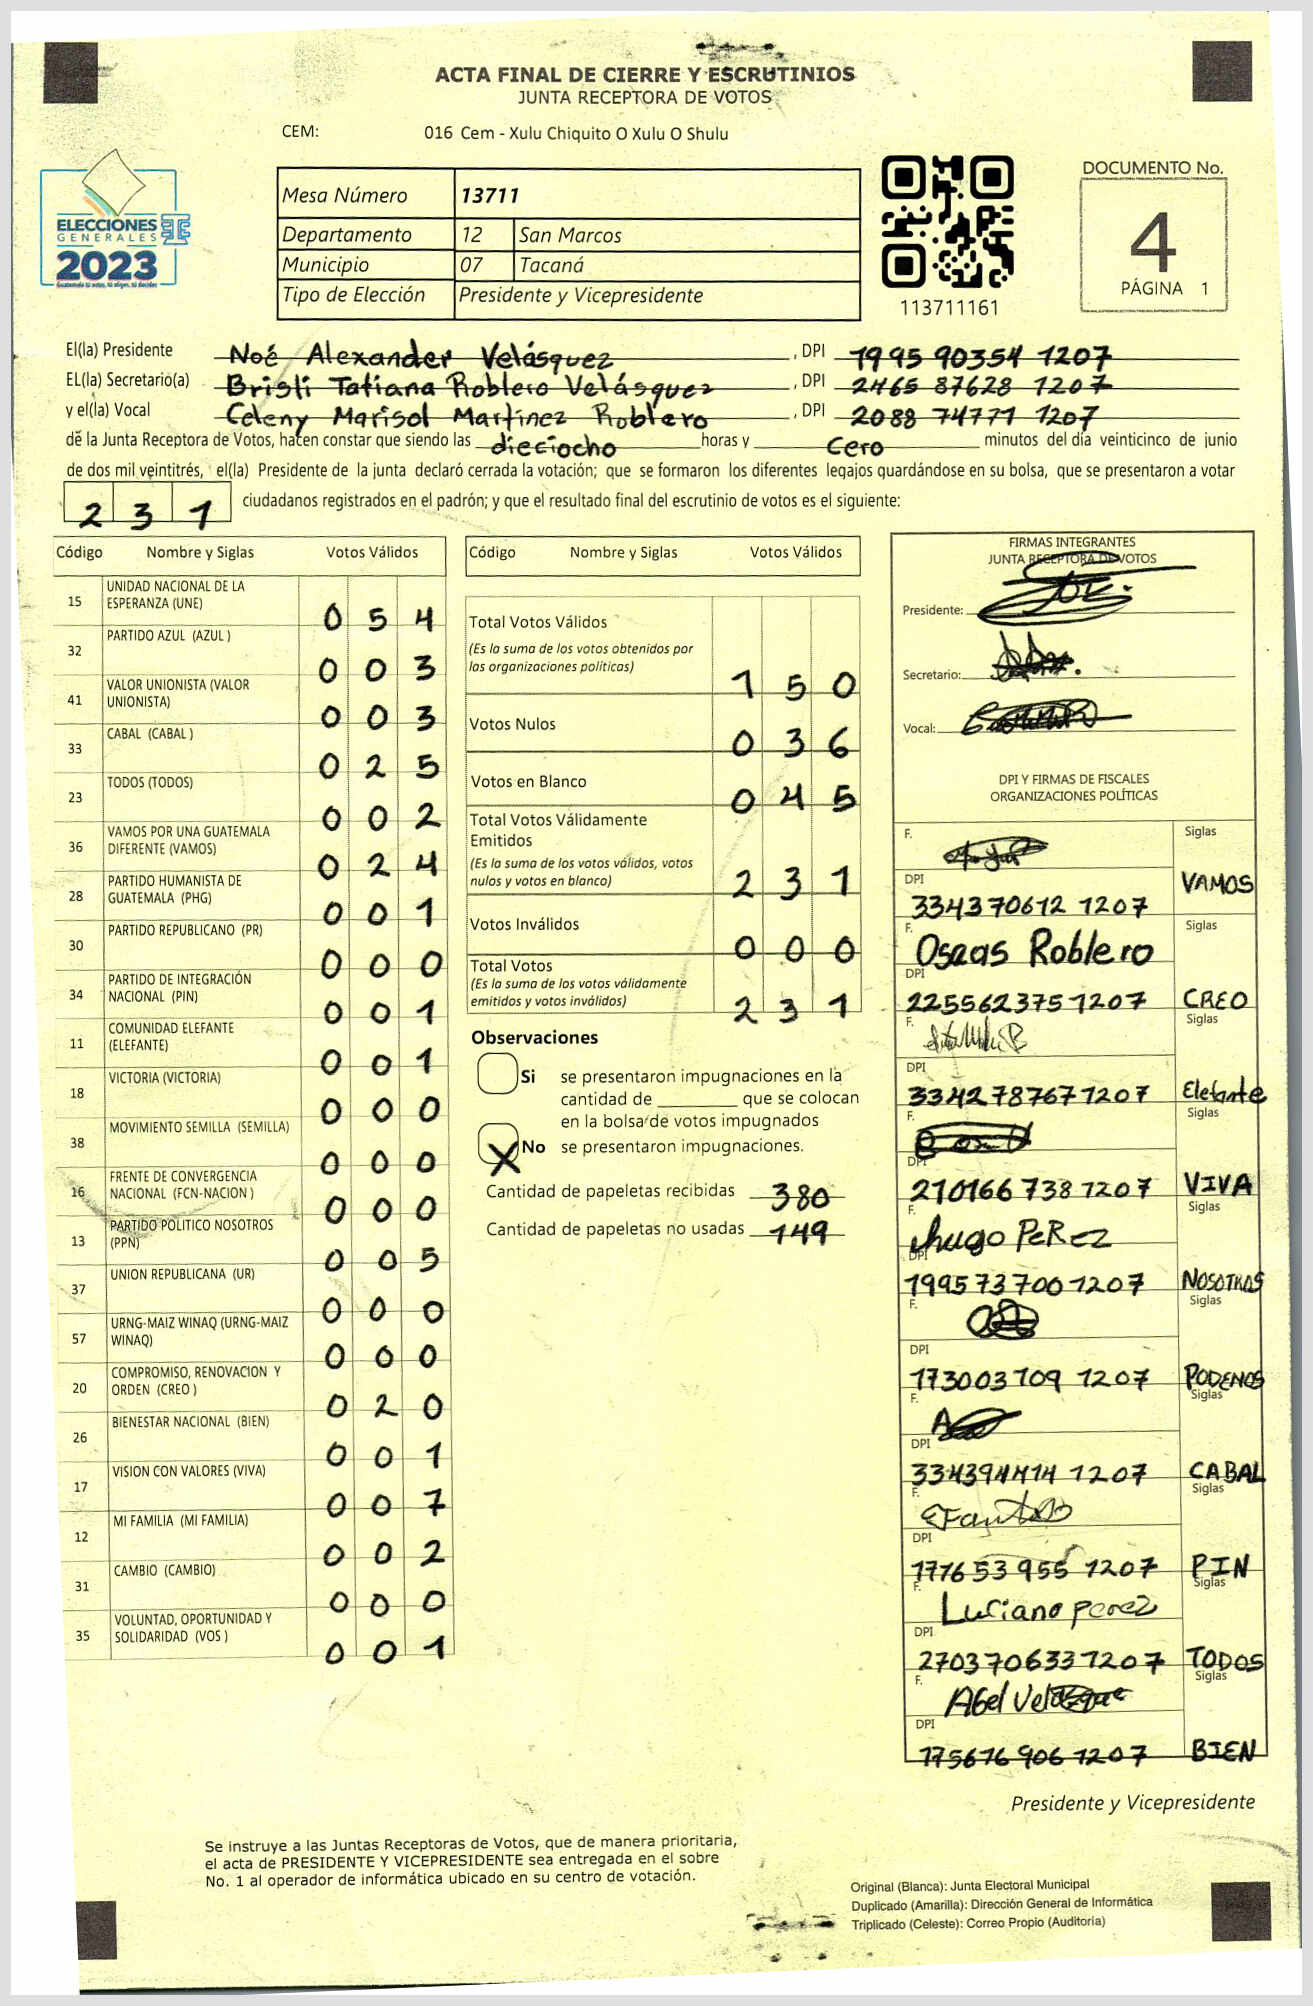 ACTA FINAL DE CIERRE Y ESCRUTINIOS
JUNTA RECEPTORA DE VOTOS
CEM: 016 Cem - Xulu Chiquito O Xulu O Shulu
ELECCIONES
GENERALES
2023
Guatemala tú votas, tú eliges, tú decides
Mesa Número 13711
Departamento 12 San Marcos
Municipio 07 Tacaná
Tipo de Elección Presidente y Vicepresidente
113711161
DOCUMENTO No.
4
PÁGINA 1
El(la) Presidente Noé Alexander Velásquez , DPI 1995 90354 1207
EL(la) Secretario(a) Brisli Tatiana Roblero Velásquez , DPI 2465 87628 1207
y el(la) Vocal Celeny Marisol Martinez Roblero , DPI 2088 74771 1207
de la Junta Receptora de Votos, hacen constar que siendo las dieciocho horas y Cero minutos del día veinticinco de junio
de dos mil veintitrés, el(la) Presidente de la junta declaró cerrada la votación; que se formaron los diferentes legajos guardándose en su bolsa, que se presentaron a votar
231 ciudadanos registrados en el padrón; y que el resultado final del escrutinio de votos es el siguiente:
Código Nombre y Siglas Votos Válidos
15 UNIDAD NACIONAL DE LA ESPERANZA (UNE) 0 5 4
32 PARTIDO AZUL (AZUL ) 0 0 3
41 VALOR UNIONISTA (VALOR UNIONISTA) 0 0 3
33 CABAL (CABAL ) 0 2 5
23 TODOS (TODOS) 0 0 2
36 VAMOS POR UNA GUATEMALA DIFERENTE (VAMOS) 0 2 4
28 PARTIDO HUMANISTA DE GUATEMALA (PHG) 0 0 1
30 PARTIDO REPUBLICANO (PR) 0 0 0
34 PARTIDO DE INTEGRACIÓN NACIONAL (PIN) 0 0 1
11 COMUNIDAD ELEFANTE (ELEFANTE) 0 0 1
18 VICTORIA (VICTORIA) 0 0 0
38 MOVIMIENTO SEMILLA (SEMILLA) 0 0 0
16 FRENTE DE CONVERGENCIA NACIONAL (FCN-NACION ) 0 0 0
13 PARTIDO POLITICO NOSOTROS (PPN) 0 0 5
37 UNION REPUBLICANA (UR) 0 0 0
57 URNG-MAIZ WINAQ (URNG-MAIZ WINAQ) 0 0 0
20 COMPROMISO, RENOVACION Y ORDEN (CREO ) 0 2 0
26 BIENESTAR NACIONAL (BIEN) 0 0 1
17 VISION CON VALORES (VIVA) 0 0 7
12 MI FAMILIA (MI FAMILIA) 0 0 2
31 CAMBIO (CAMBIO) 0 0 0
35 VOLUNTAD, OPORTUNIDAD Y SOLIDARIDAD (VOS ) 0 0 1
Código Nombre y Siglas Votos Válidos
Total Votos Válidos
(Es la suma de los votos obtenidos por
las organizaciones políticas) 1 5 0
Votos Nulos 0 3 6
Votos en Blanco 0 4 5
Total Votos Válidamente
Emitidos
(Es la suma de los votos válidos, votos
nulos y votos en blanco) 2 3 1
Votos Inválidos 0 0 0
Total Votos
(Es la suma de los votos válidamente
emitidos y votos inválidos) 2 3 1
Observaciones
Si se presentaron impugnaciones en la
cantidad de ________ que se colocan
en la bolsa de votos impugnados
X No se presentaron impugnaciones.
Cantidad de papeletas recibidas 380
Cantidad de papeletas no usadas 149
FIRMAS INTEGRANTES
JUNTA RECEPTORA DE VOTOS
Presidente:
Secretario:
Vocal:
DPI Y FIRMAS DE FISCALES
ORGANIZACIONES POLÍTICAS
F. Siglas
DPI 334370612 1207 VAMOS
F. Oseas Roblero Siglas
DPI 225562375 1207 CREO
F. Siglas
DPI 334278767 1207 Elefante
F. Siglas
DPI 210166 738 1207 VIVA
F. Hugo PEREZ Siglas
DPI 199573700 1207 NOSOTROS
F. Siglas
DPI 173003709 1207 PODEMOS
F. Siglas
DPI 334394414 1207 CABAL
F. Siglas
DPI 177653 955 1207 PIN
F. Luciano perez Siglas
DPI 270370633 1207 TODOS
F. Abel Siglas
DPI 175676 906 1207 BIEN
Presidente y Vicepresidente
Se instruye a las Juntas Receptoras de Votos, que de manera prioritaria,
el acta de PRESIDENTE Y VICEPRESIDENTE sea entregada en el sobre
No. 1 al operador de informática ubicado en su centro de votación.
Original (Blanca): Junta Electoral Municipal
Duplicado (Amarilla): Dirección General de Informática
Triplicado (Celeste): Correo Propio (Auditoría)